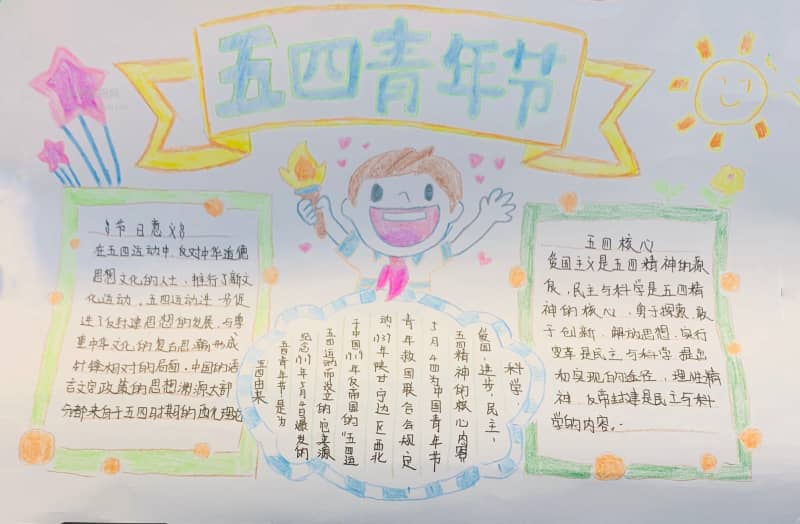 五四青年节
节日意义
在五四运动中,反对中华道德
思想文化的人士,推行了新文
化运动,五四运动进一步促
进了反封建思想的发展,与尊
重中华文化的复古思潮形成
针锋相对的局面,中国的语
言文字政策的思想渊源大部
分都来自于五四时期的西化理论
五四由来
五四青年节是为
纪念1919年5月4日爆发的
五四运动而设立的,它来源
于中国1919年反帝国的“五四运
动,1939年陕甘宁边区西北
青年救国联合会规定
5月4日为中国青年节
五四精神的核心内容
爱国,进步,民主,
科学
五四核心
爱国主义是五四精神的源
泉,民主与科学是五四精
神的核心,勇于探索,敢
于创新,解放思想,实行
变革是民主与科学提出
和实现的途径,理性精
神,反帝封建是民主与科
学的内容.